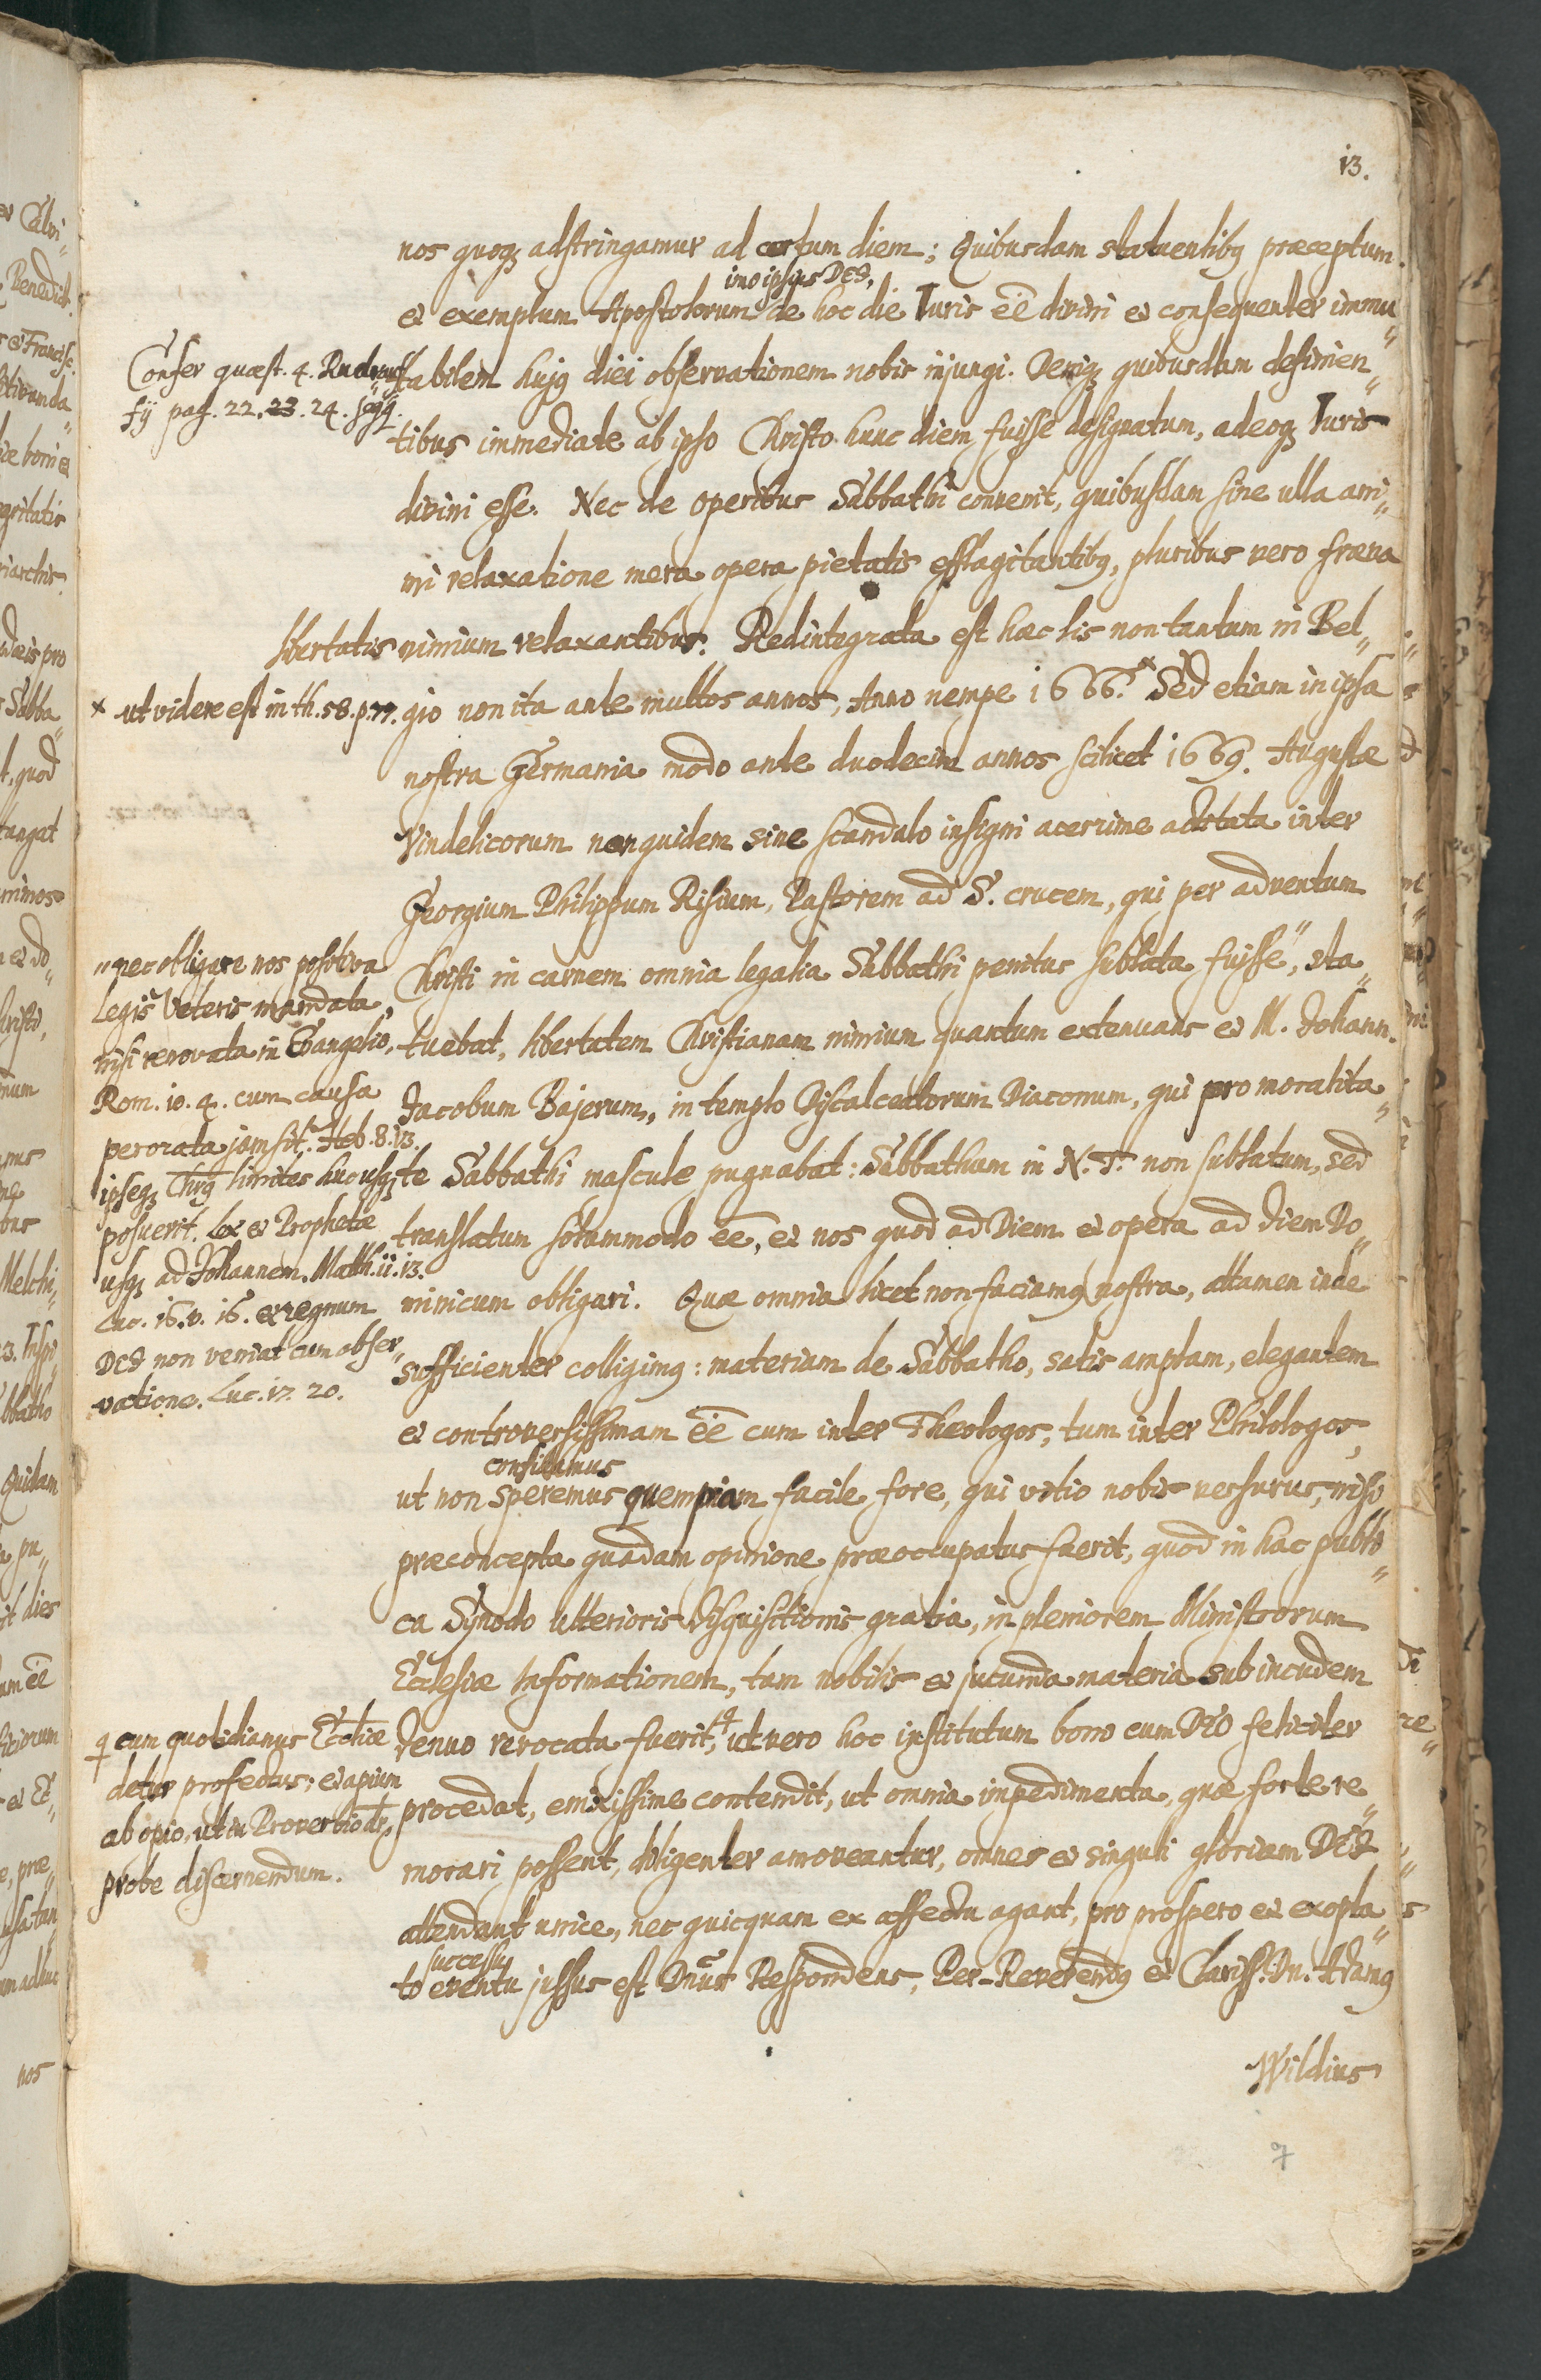 13.
nos quoqꝫ adstringamur ad certum diem; Quibusdam statuentibꝰ præceptum
imo ipsius DEI,
et exemplum Apostolorum de hoc die Iuris ēē divini et consequenter immu„
tabilem hujꝰ diei observationem nobis injungi. Deniqꝫ quibusdam definien„
tibus immediate ab ipso Christo hunc diem fuisse designatum, adeoqꝫ Iuris
divini esse. Nec de operibus Sabbathi convenit, quibusdam sine ulla ani„
mi relaxatione mera opera pietatis efflagitantibꝰ, pluribus vero fræna
libertatis nimium relaxantibus. Redintegrata est hæc lis non tantum in Bel„
gio non ita ante multos annos, Anno nempe 1666.ˣ Sed etiam in ipsa
nostra Germania modo ante duodecim annos scilicet 1669. Augustæ
Vindelicorum non quidem sine scandalo insigni acerrime actitata inter
Georgium Philippum Risium, Pastorem ad S. crucem, qui per adventum
Christi in carnem omnia legalia Sabbathi penitus sublata fuisse", sta„
tuebat, libertatem Christianam nimium quantum extenuans et M. Johann.
Jacobum Bajerum, in templo Discalceatorum Diaconum, qui pro moralita„
te Sabbathi mascule pugnabat: Sabbathum in N. T. non sublatum, sed
translatum solummodo ēē, et nos quod ad Diem et opera ad diem Do„
minicum obligari. Quæ omnia licet non faciamꝰ nostra, attamen inde
sufficienter colligimꝰ: materiam de Sabbatho, satis amplam, elegantem
et controversissimam ēē cum inter Theologos, tum inter Philologos,
confidamus
ut non speremus quempiam facile fore, qui vitio nobis versurus, nisi
præconcepta quadam opinione præoccupatus fuerit, quod in hac publi„
ca Synodo ulterioris disquisitionis gratia, in pleniorem Ministrorum
Ecclesiæ Informationem, tam nobilis et jucunda materia sub incudem
denuo revocata fuerit, ut vero hoc institutum bono cum DEO feliciter
procedat, enixissime contendit, ut omnia impedimenta, quæ forte re„
morari possent, diligenter amoveantur, omnes et singuli gloriam DEI
attendant unice, nec quicquam ex affectu agant, pro prospero et exopta„
successu
to eventu jussus est Dn̄us Respondens, Per-Reverendꝰ et Clariss. Dn. Adamꝰ
Wildius
Confer quæst. 4.
pag. 22. 23. 24. seqq.
x ut videre est in th. 58. p. 77.
" nec obligare nos positiva
Legis Veteris mandata,
nisi renovata in Evangelio,
Rom. 10. 4. cum causa
perorata jam sit. Heb. 8. 13.
ipseqꝫ Chrꝰ limites hucusqꝫ
posuerit. Lex et Prophetæ
usqꝫ ad Johannem. Matth. 11. 13.
Luc. 16. v. 16. et regnum
DEI non veniat cum obser„
vatione. Luc. 17. 20.
cum quotidianus Eccliæ
detur profectus: et apium
ab opio, ut in Proverbio
probe discernendum.